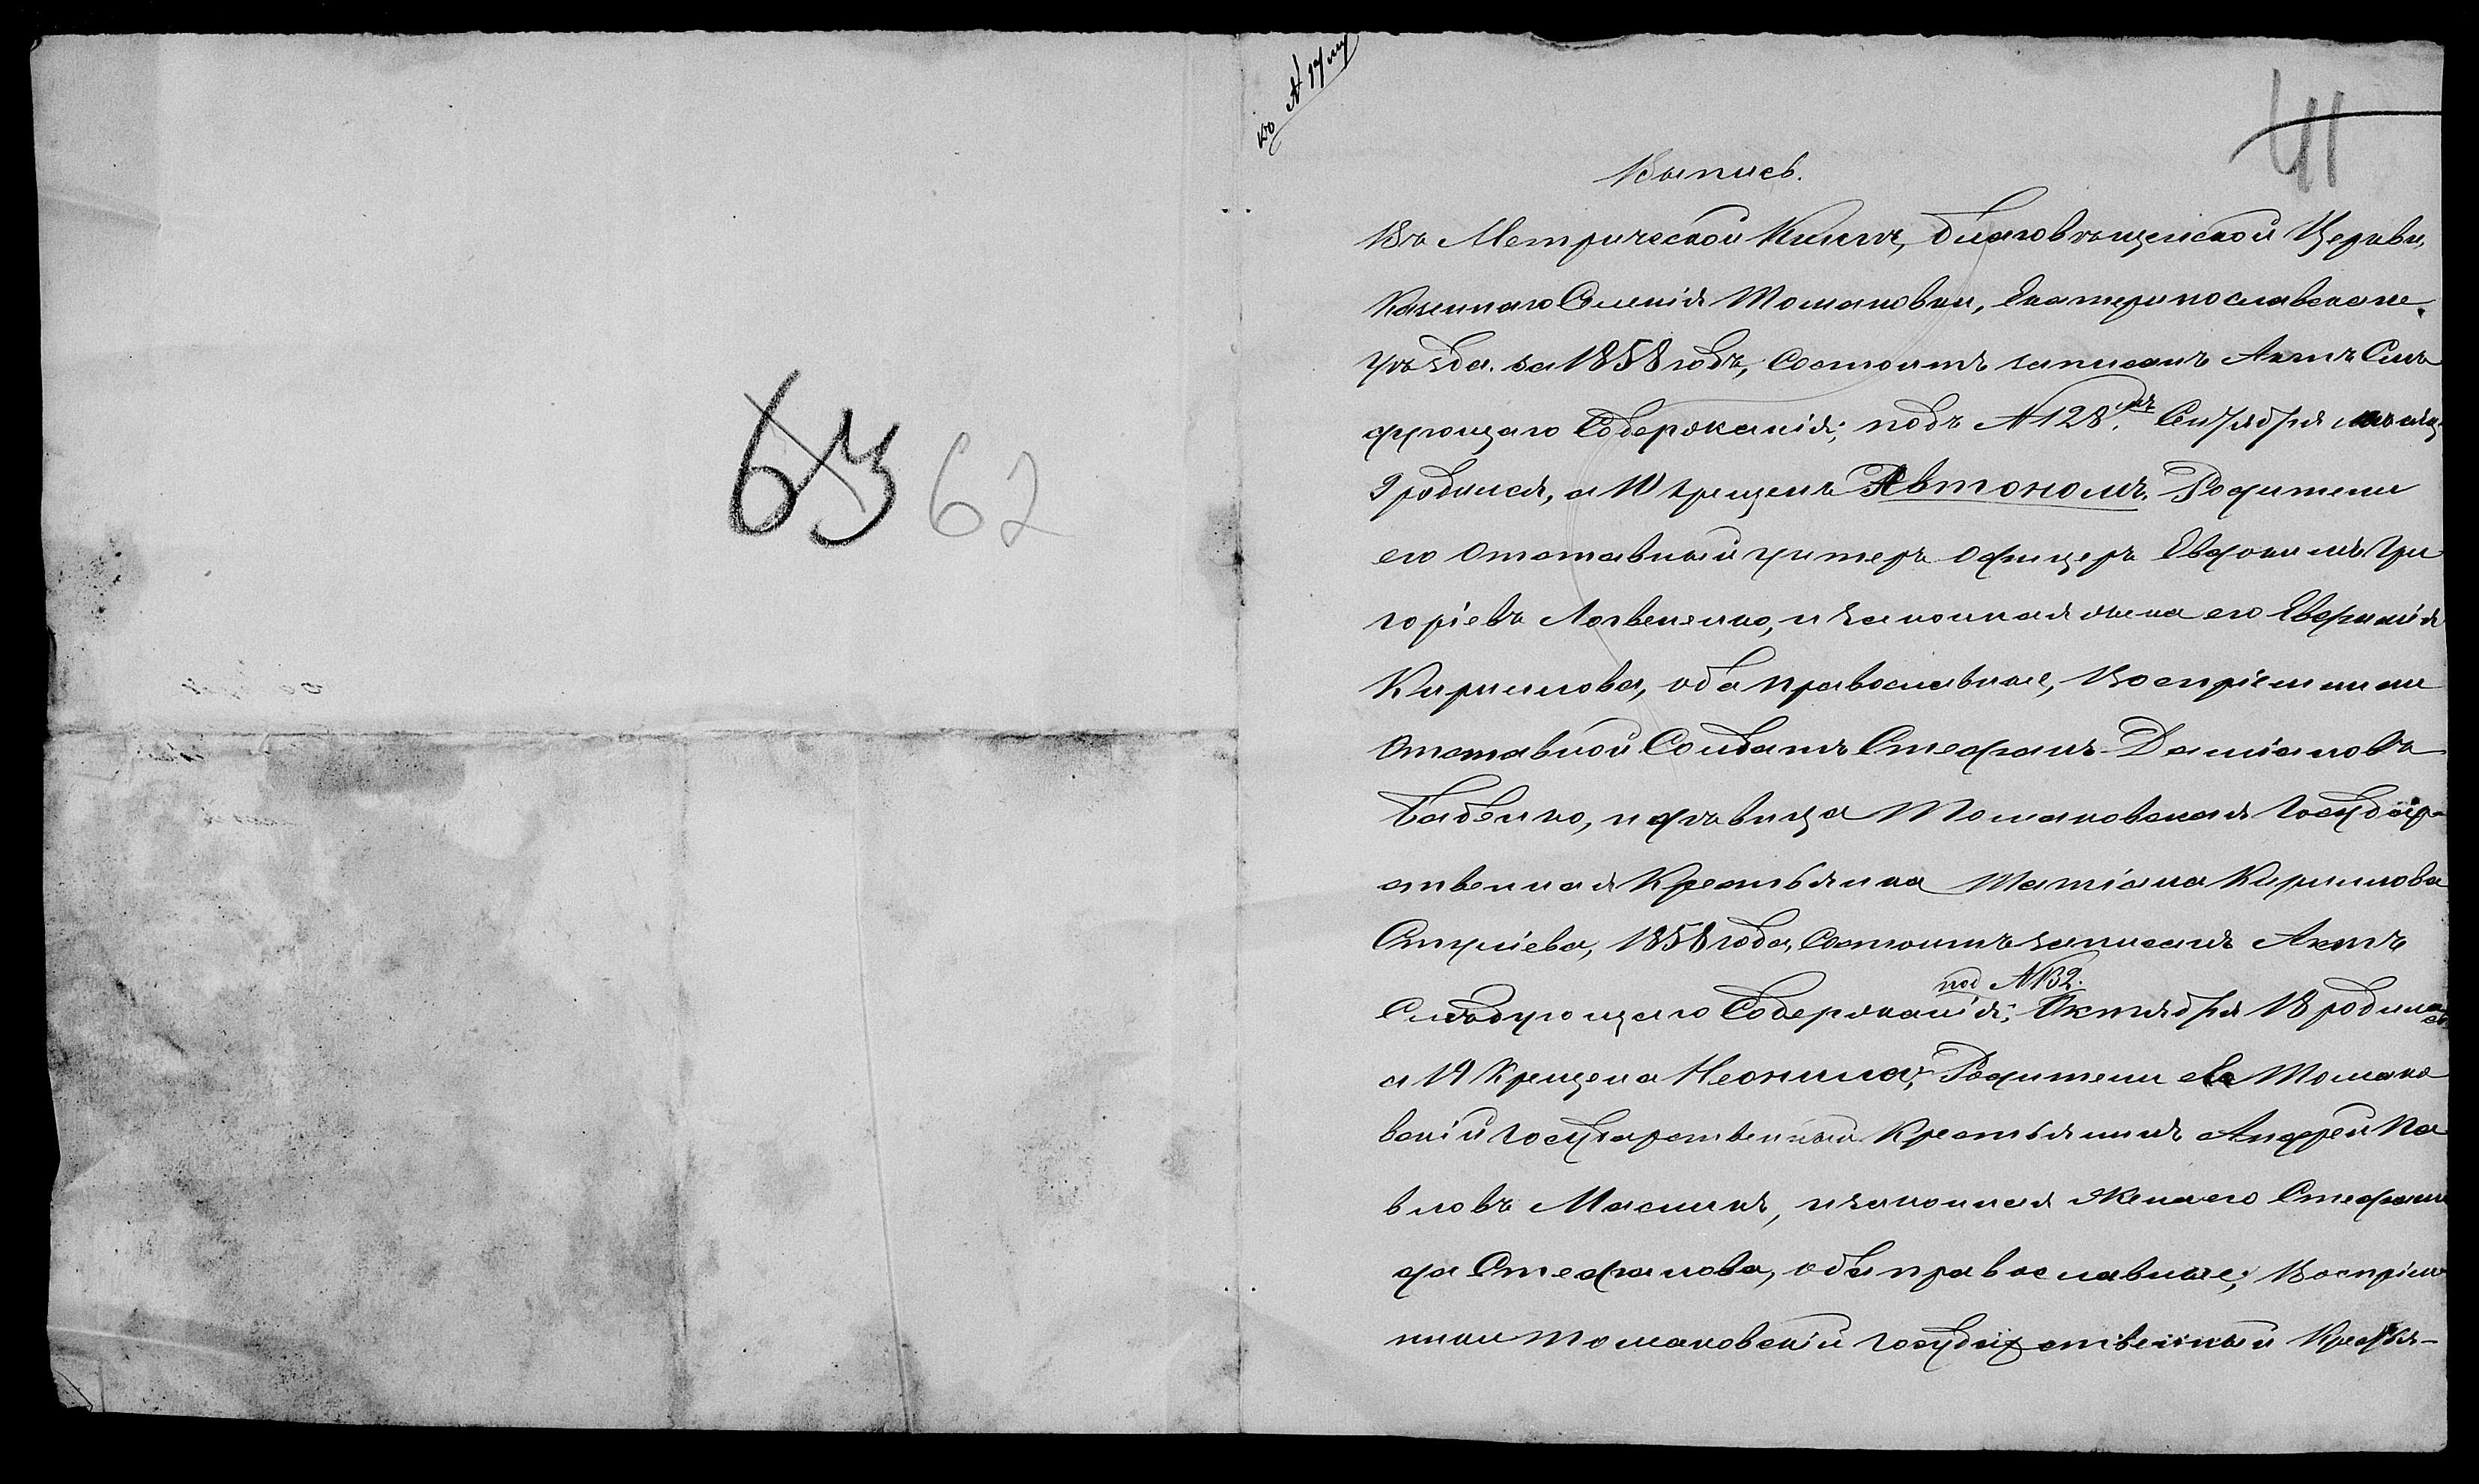 63 62
41
Выписъ.
Въ Метрической Книгѣ, Благовѣщенской Церкви,
Казеннаго Селенія Томаковки, Екатеринославскаго
уѣзда. за 1858 годъ, Состоитъ записанъ Актъ Слѣ
дующаго Содержанія; подъ №128. Сентября мѣсяца
9 родился, а 10 крещенъ Автономъ. Родители
его Отставный унтеръ Офицеръ Евдокимъ Гри
горіевъ Логвененко, и законная жена его Евфимія
Кириллова, оба православные, Воспріемники
Отставной Солдатъ Стефанъ Даміановъ
Бабенко, и дѣвица Томаковская Государ-
ственная Крестьянка Татіана Кириллова
1858 года, Состоитъ записанъ Актъ
под №132.
Слѣдующаго Содержанія; Октября 18 родилась
а 19 Крещена Неонила, Родители ея Томако
вскій Государственный Крестьянинъ Андрей Па
вловъ Масликъ, и законная Жена его Стефани
да Стефанова, оба православные; Воспріем
ники Томаковскій Государственный Крестья-